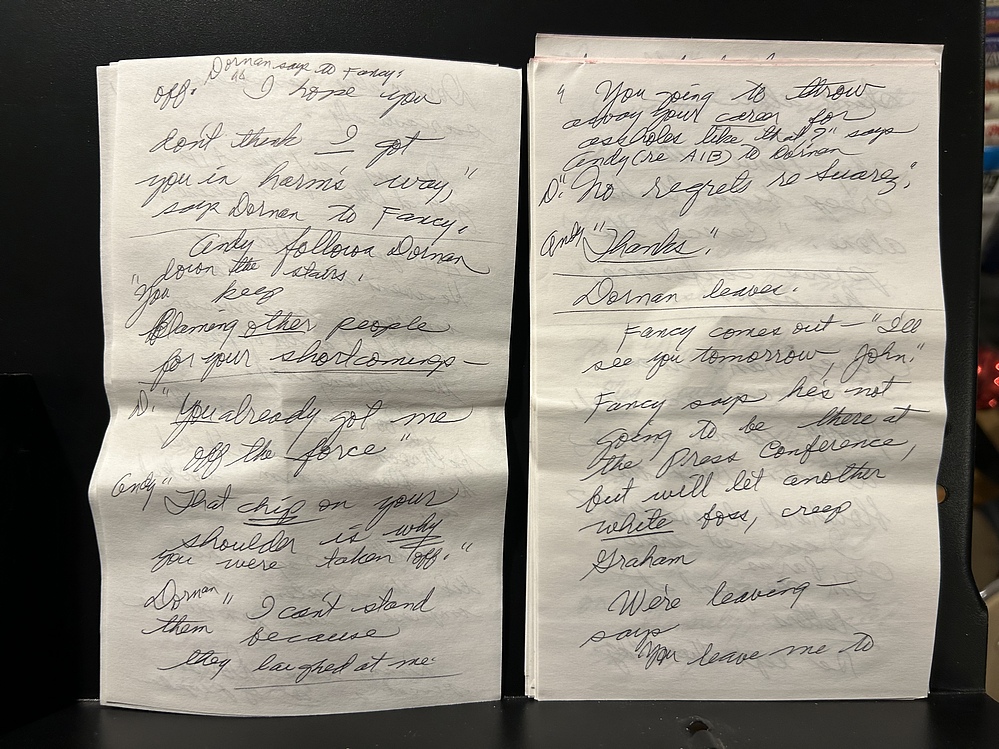 Dornan says to Fancy:
off. "I hope you
don't think I got
you in harm's way,"
says Dornan to Fancy.
Andy follows Dornan
down the stairs.
"You keep
blaming other people
for your shortcomings —
D. "You already got me
off the force"
Andy "That chip on your
shoulder is why
you were taken off."
Dornan "I can't stand
them because
they laughed at me.
" You going to throw
away your career for
assholes like that?" says
Andy (re AIB) to Dornan
D." No regrets re Suarez,"
Andy "Thanks."
Dornan leaves.
Fancy comes out — "I'll
see you tomorrow, John."
Fancy says he's not
going to be there at
the Press Conference,
but will let another
white boss, creep
Graham
We're leaving —
says
You leave me to